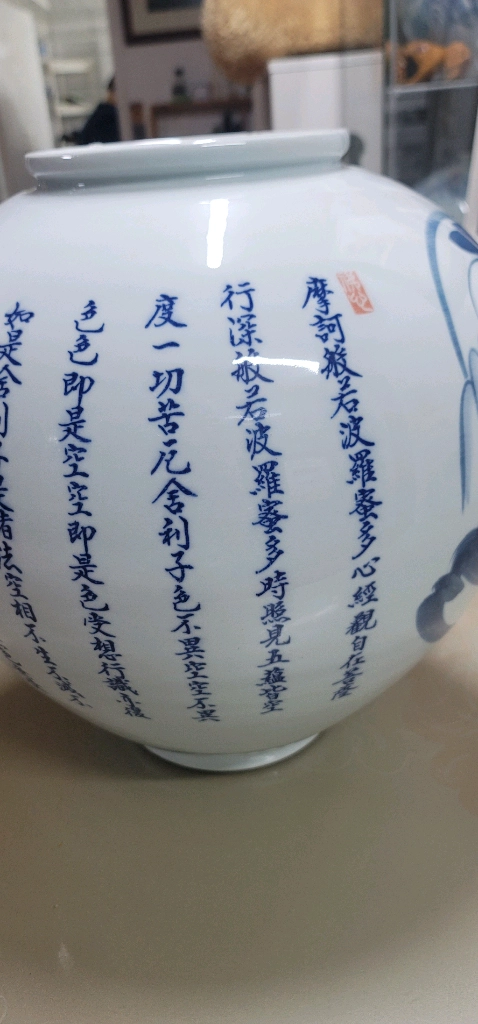 摩訶般若波羅蜜多心經觀自在菩薩
行深般若波羅蜜多時照見五蘊皆空
度一切苦厄舍利子色不異空空不異
色色即是空空即是色受想行識亦復
如是舍利子是諸法空相不生不滅不